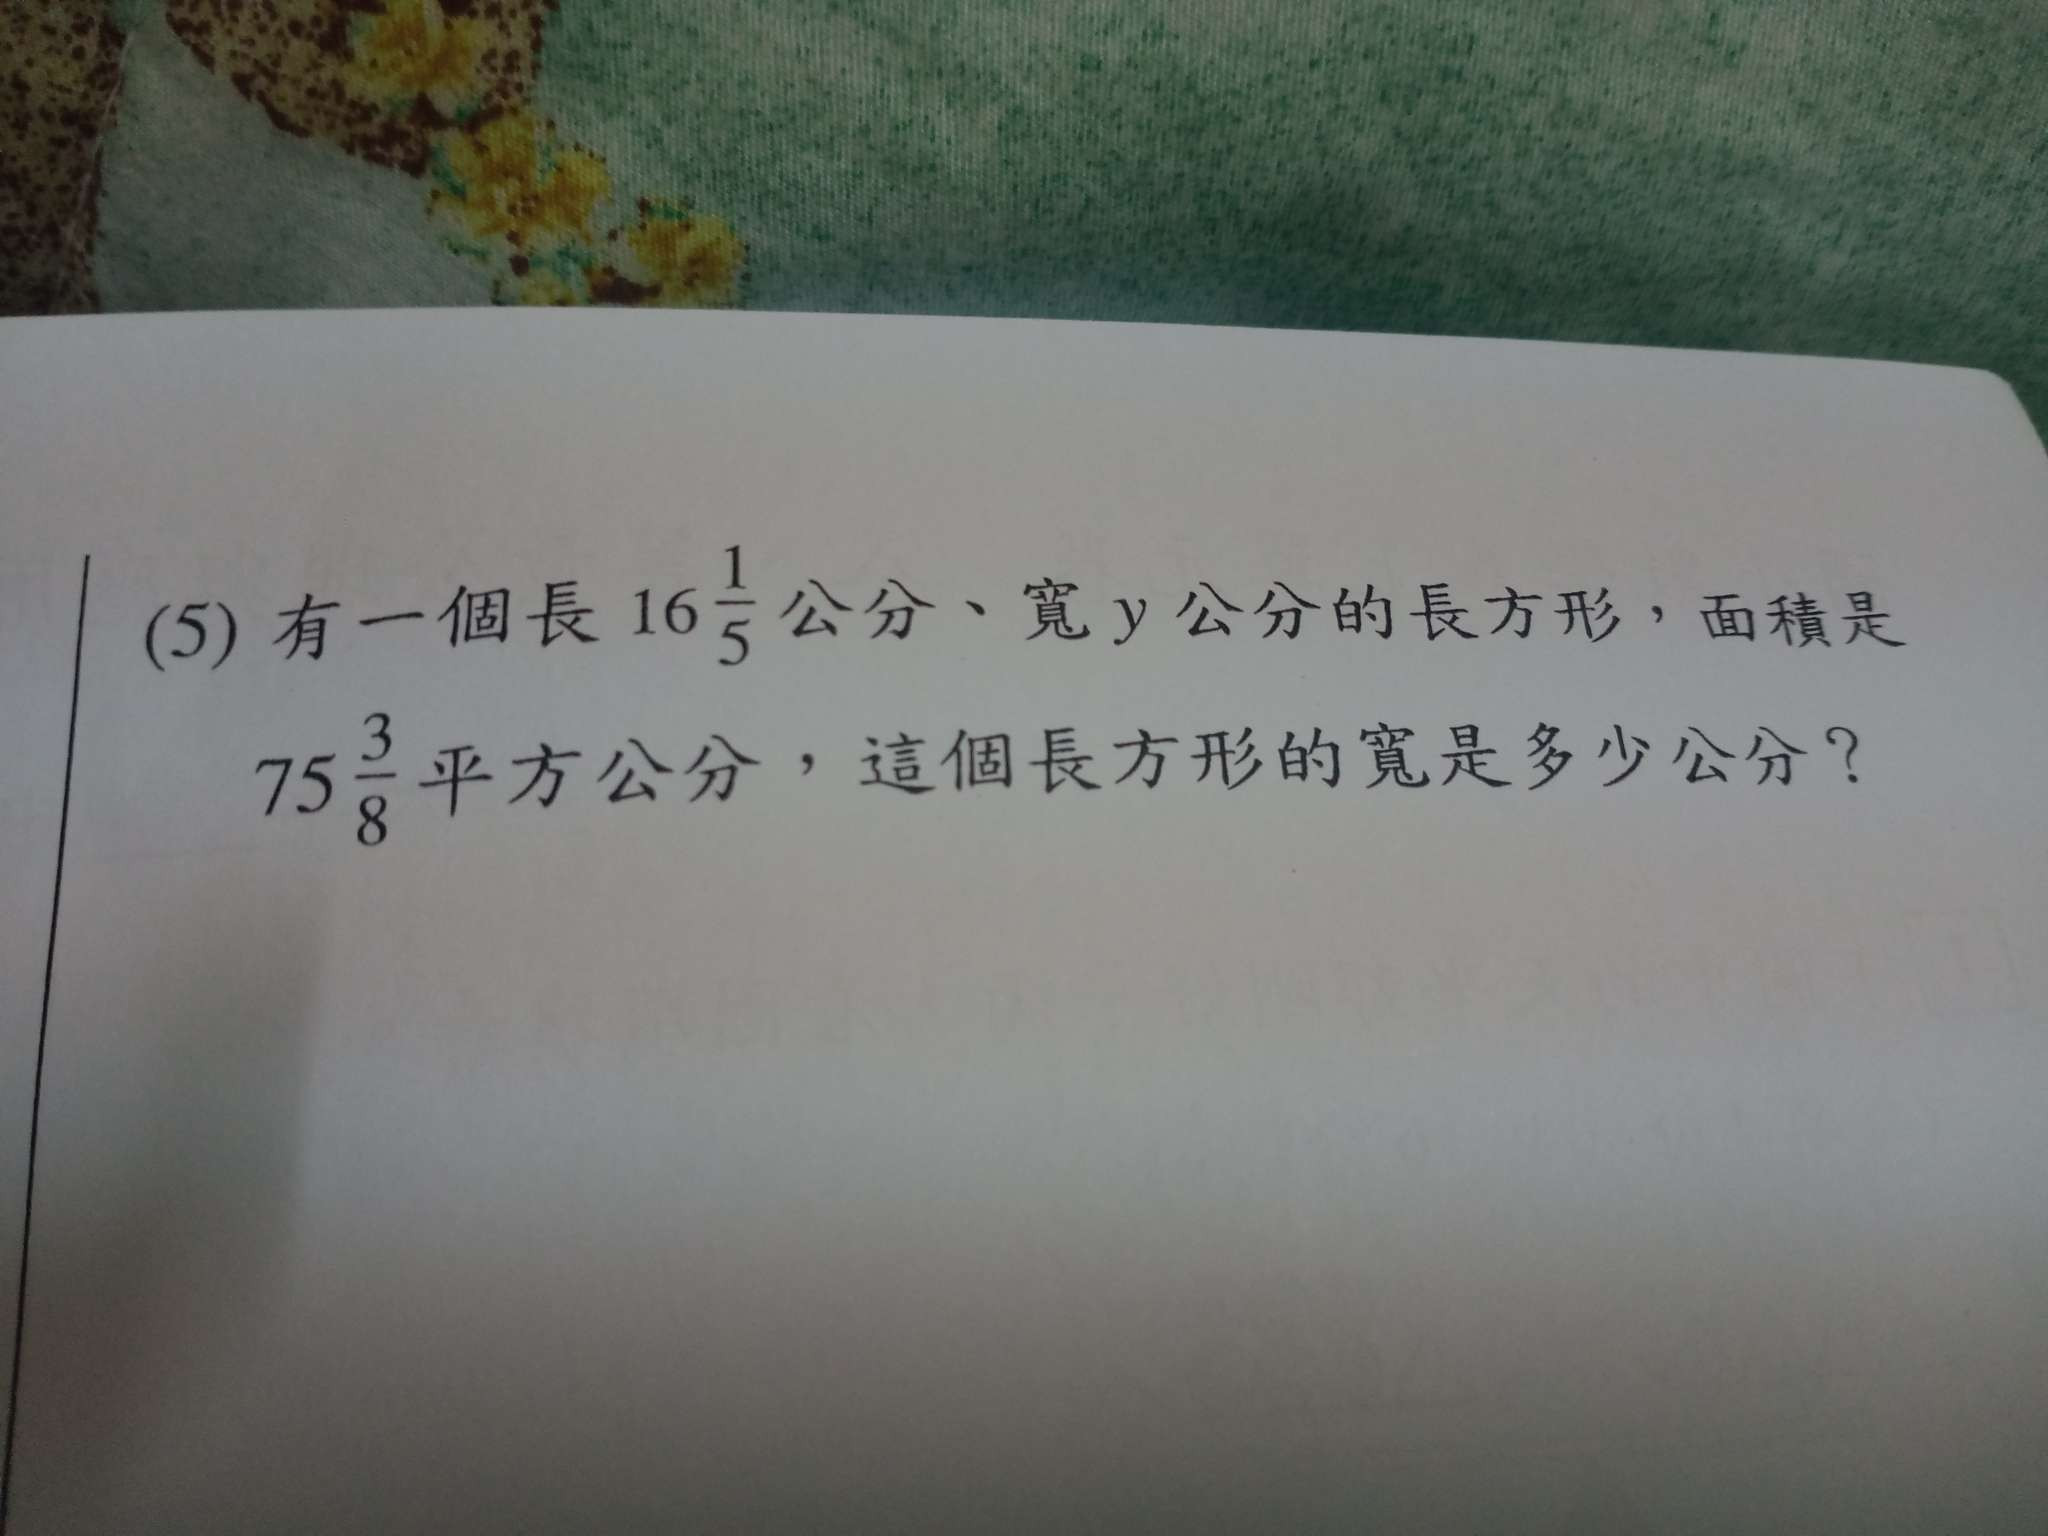 (5) 有一個長 16 1/5 公分、寬 y 公分的長方形，面積是
75 3/8 平方公分，這個長方形的寬是多少公分？